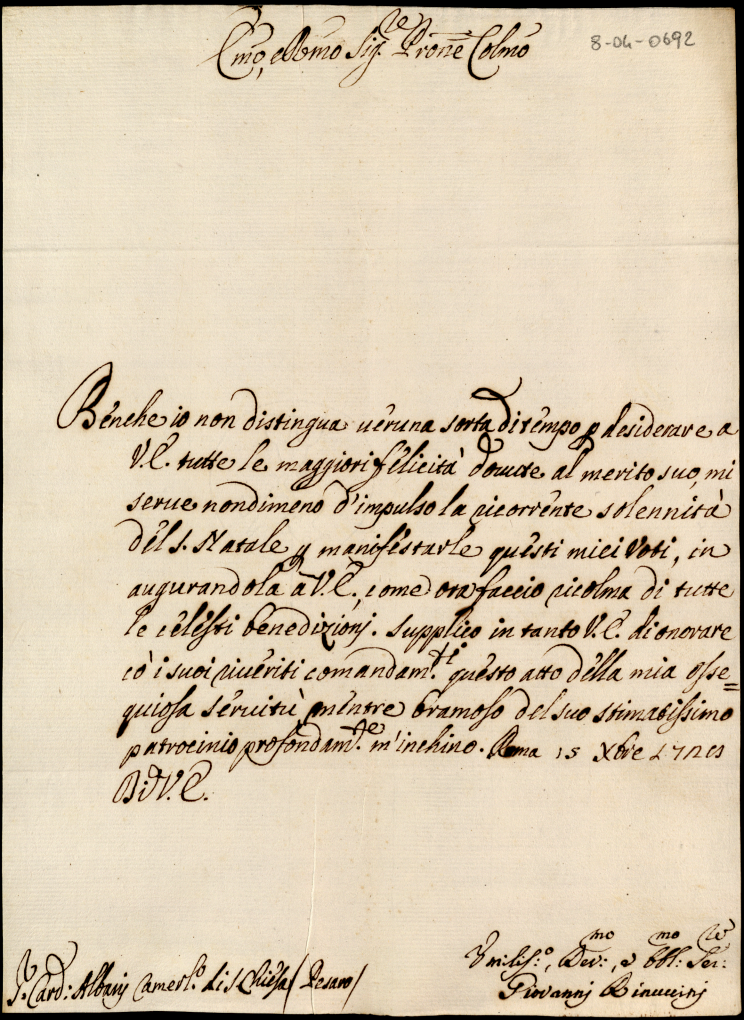 8-04-0692
Emo, e Rmo Sig.re Prone Colmo
Benche io non distingua ueruna sorta di tempo p desiderare a
V.E. tutte le maggiori felicità douute al merito suo, mi
serue nondimeno d'impulso la ricorrente solennità
del S. Natale p manifestarle questi miei Voti, in
augurandola à V.E., come ora faccio ricolma di tutte
le celesti benedizionj. Supplico in tanto V.E. di onorare
cò i suoi riueriti comandam.ti questo atto della mia osse=
quiosa seruitù, mentre bramoso del suo stimatissimo
patrocinio profondam.te m'inchino. Roma 15 Xbre
Di V.E.
Vmiliss.o, Deu:mo, e obbl:mo Ser:re
Giovannj Rinuccinj
S.r Card: Albanj Camerl.o di S. Chiesa (Pesaro)